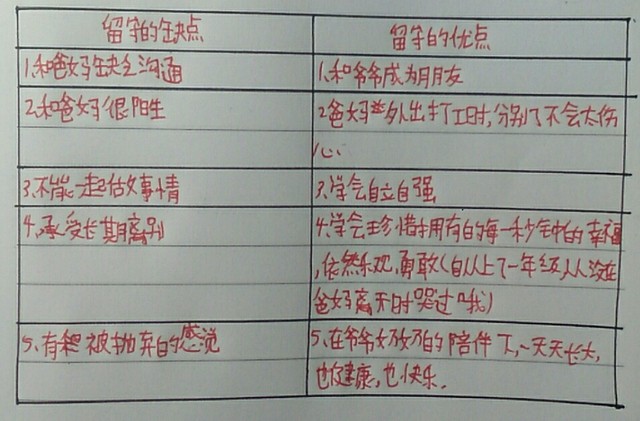 留守的缺点
留守的优点
1.和爸妈缺乏沟通
1.和爷爷成为朋友
2.和爸妈很陌生
2.爸妈外出打工时,分别了不会太伤
心.
3.不能一起做事情
3.学会自立自强
4.承受长期离别
4.学会珍惜拥有的每一秒钟的幸福
,依然乐观,勇敢(自从上了一年级,从没在
爸妈离开时哭过哦)
5.有种被抛弃的感觉
5.在爷爷奶奶的陪伴下,一天天长大,
也健康,也快乐.